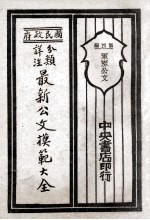 國民政府
分類
詳注
最新公文模範大全
第四冊
軍界公文
中央書店印行